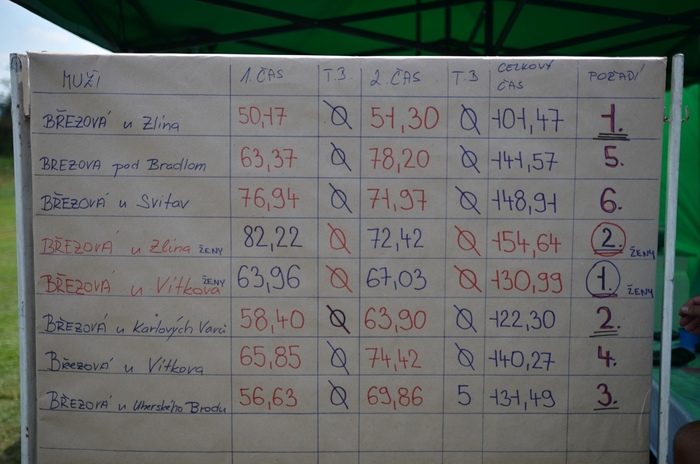 MUŽI 1 ČAS T.B. 2. ČAS T.B CELKOVÝ ČAS POŘADÍ
BŘEZOVÁ u Zlína 50,17 Ø 51,30 Ø 101,47 1.
BREZOVA pod Bradlom 63,37 Ø 78,20 Ø 141,57 5.
BŘEZOVÁ u Svitav 76,94 Ø 71,97 Ø 148,91 6.
BŘEZOVÁ u Zlína ŽENY 82,22 Ø 72,42 Ø 154,64 2. ŽENY
BŘEZOVÁ u Vítkova ŽENY 63,96 Ø 67,03 Ø 130,99 1. ŽENY
BŘEZOVÁ u Karlových Varů 58,40 Ø 63,90 Ø 122,30 2.
Březová u Vítkova 65,85 Ø 74,42 Ø 140,27 4.
BŘEZOVÁ u Uherského Brodu 56,63 Ø 69,86 5 131,49 3.